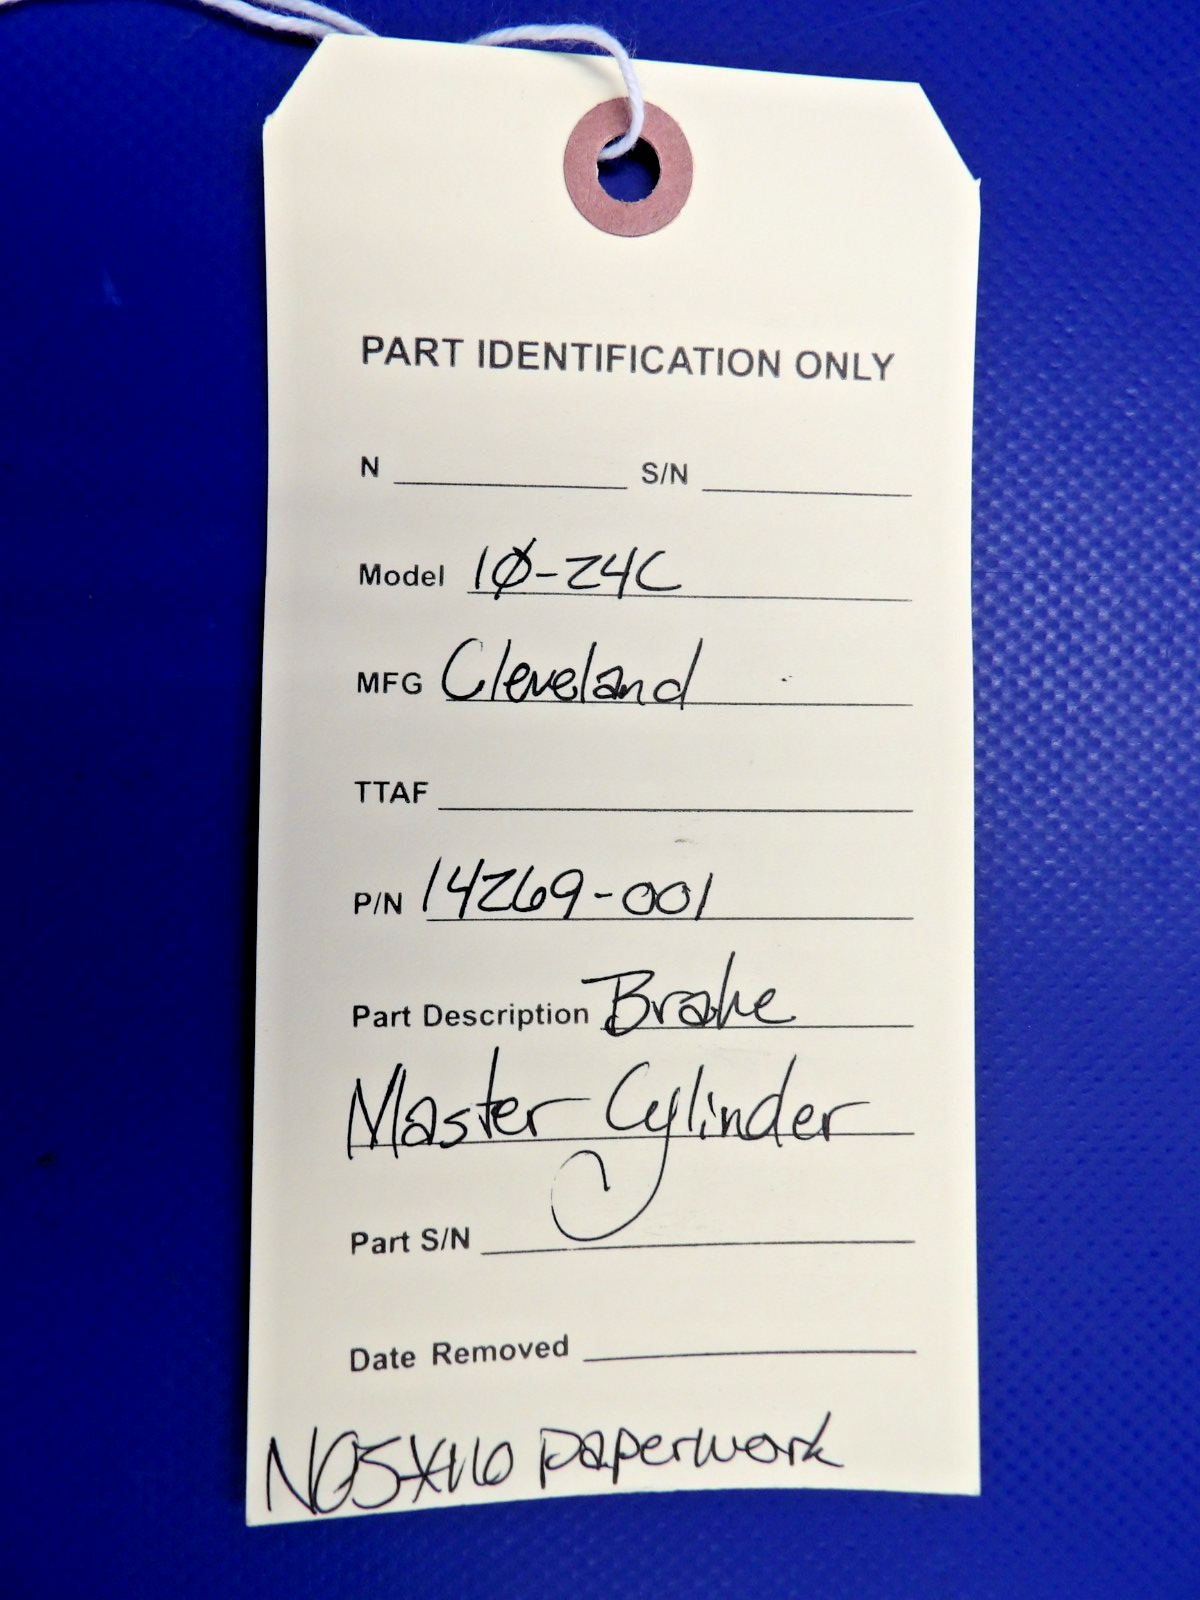 PART IDENTIFICATION ONLY
N S/N
Model 10-24C
MFG Cleveland
TTAF
P/N 14269-001
Part Description Brake
Master Cylinder
Part S/N
Date Removed
paperwork